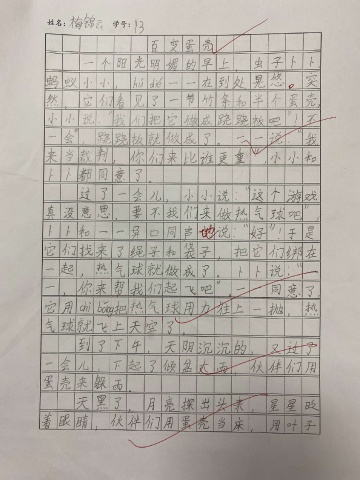 姓名：梅锦云 学号：13
百变蛋壳
一个阳光明媚的早上，虫子卜卜
蚂蚁小小，hú dié一一在到处晃悠。突
然，它们看见了一节竹条和半个蛋壳，
小小说：“我们把它做成跷跷板吧！”不
一会，跷跷板就做成了。一一说：“我
来当裁判，你们来比谁更重，小小和
卜卜都同意了。
过了一会儿，小小说：“这个游戏
真没意思，要不我们来做热气球吧”，
卜卜和一一异口同声的说：“好”！于是
它们找来了绳子和袋子，把它们绑在
一起，热气球就做成了。卜卜说：“一
一，你来帮我们起飞吧”一一同意了
它用chì bǎng把热气球用力往上一抛，热
气球就飞上天空了。
到了下午，天阴沉沉的，又过了
一会儿，下起了倾盆大雨，伙伴们用
蛋壳来躲雨。
天黑了，月亮探出头来，星星眨
着眼睛，伙伴们用蛋壳当床，用叶子